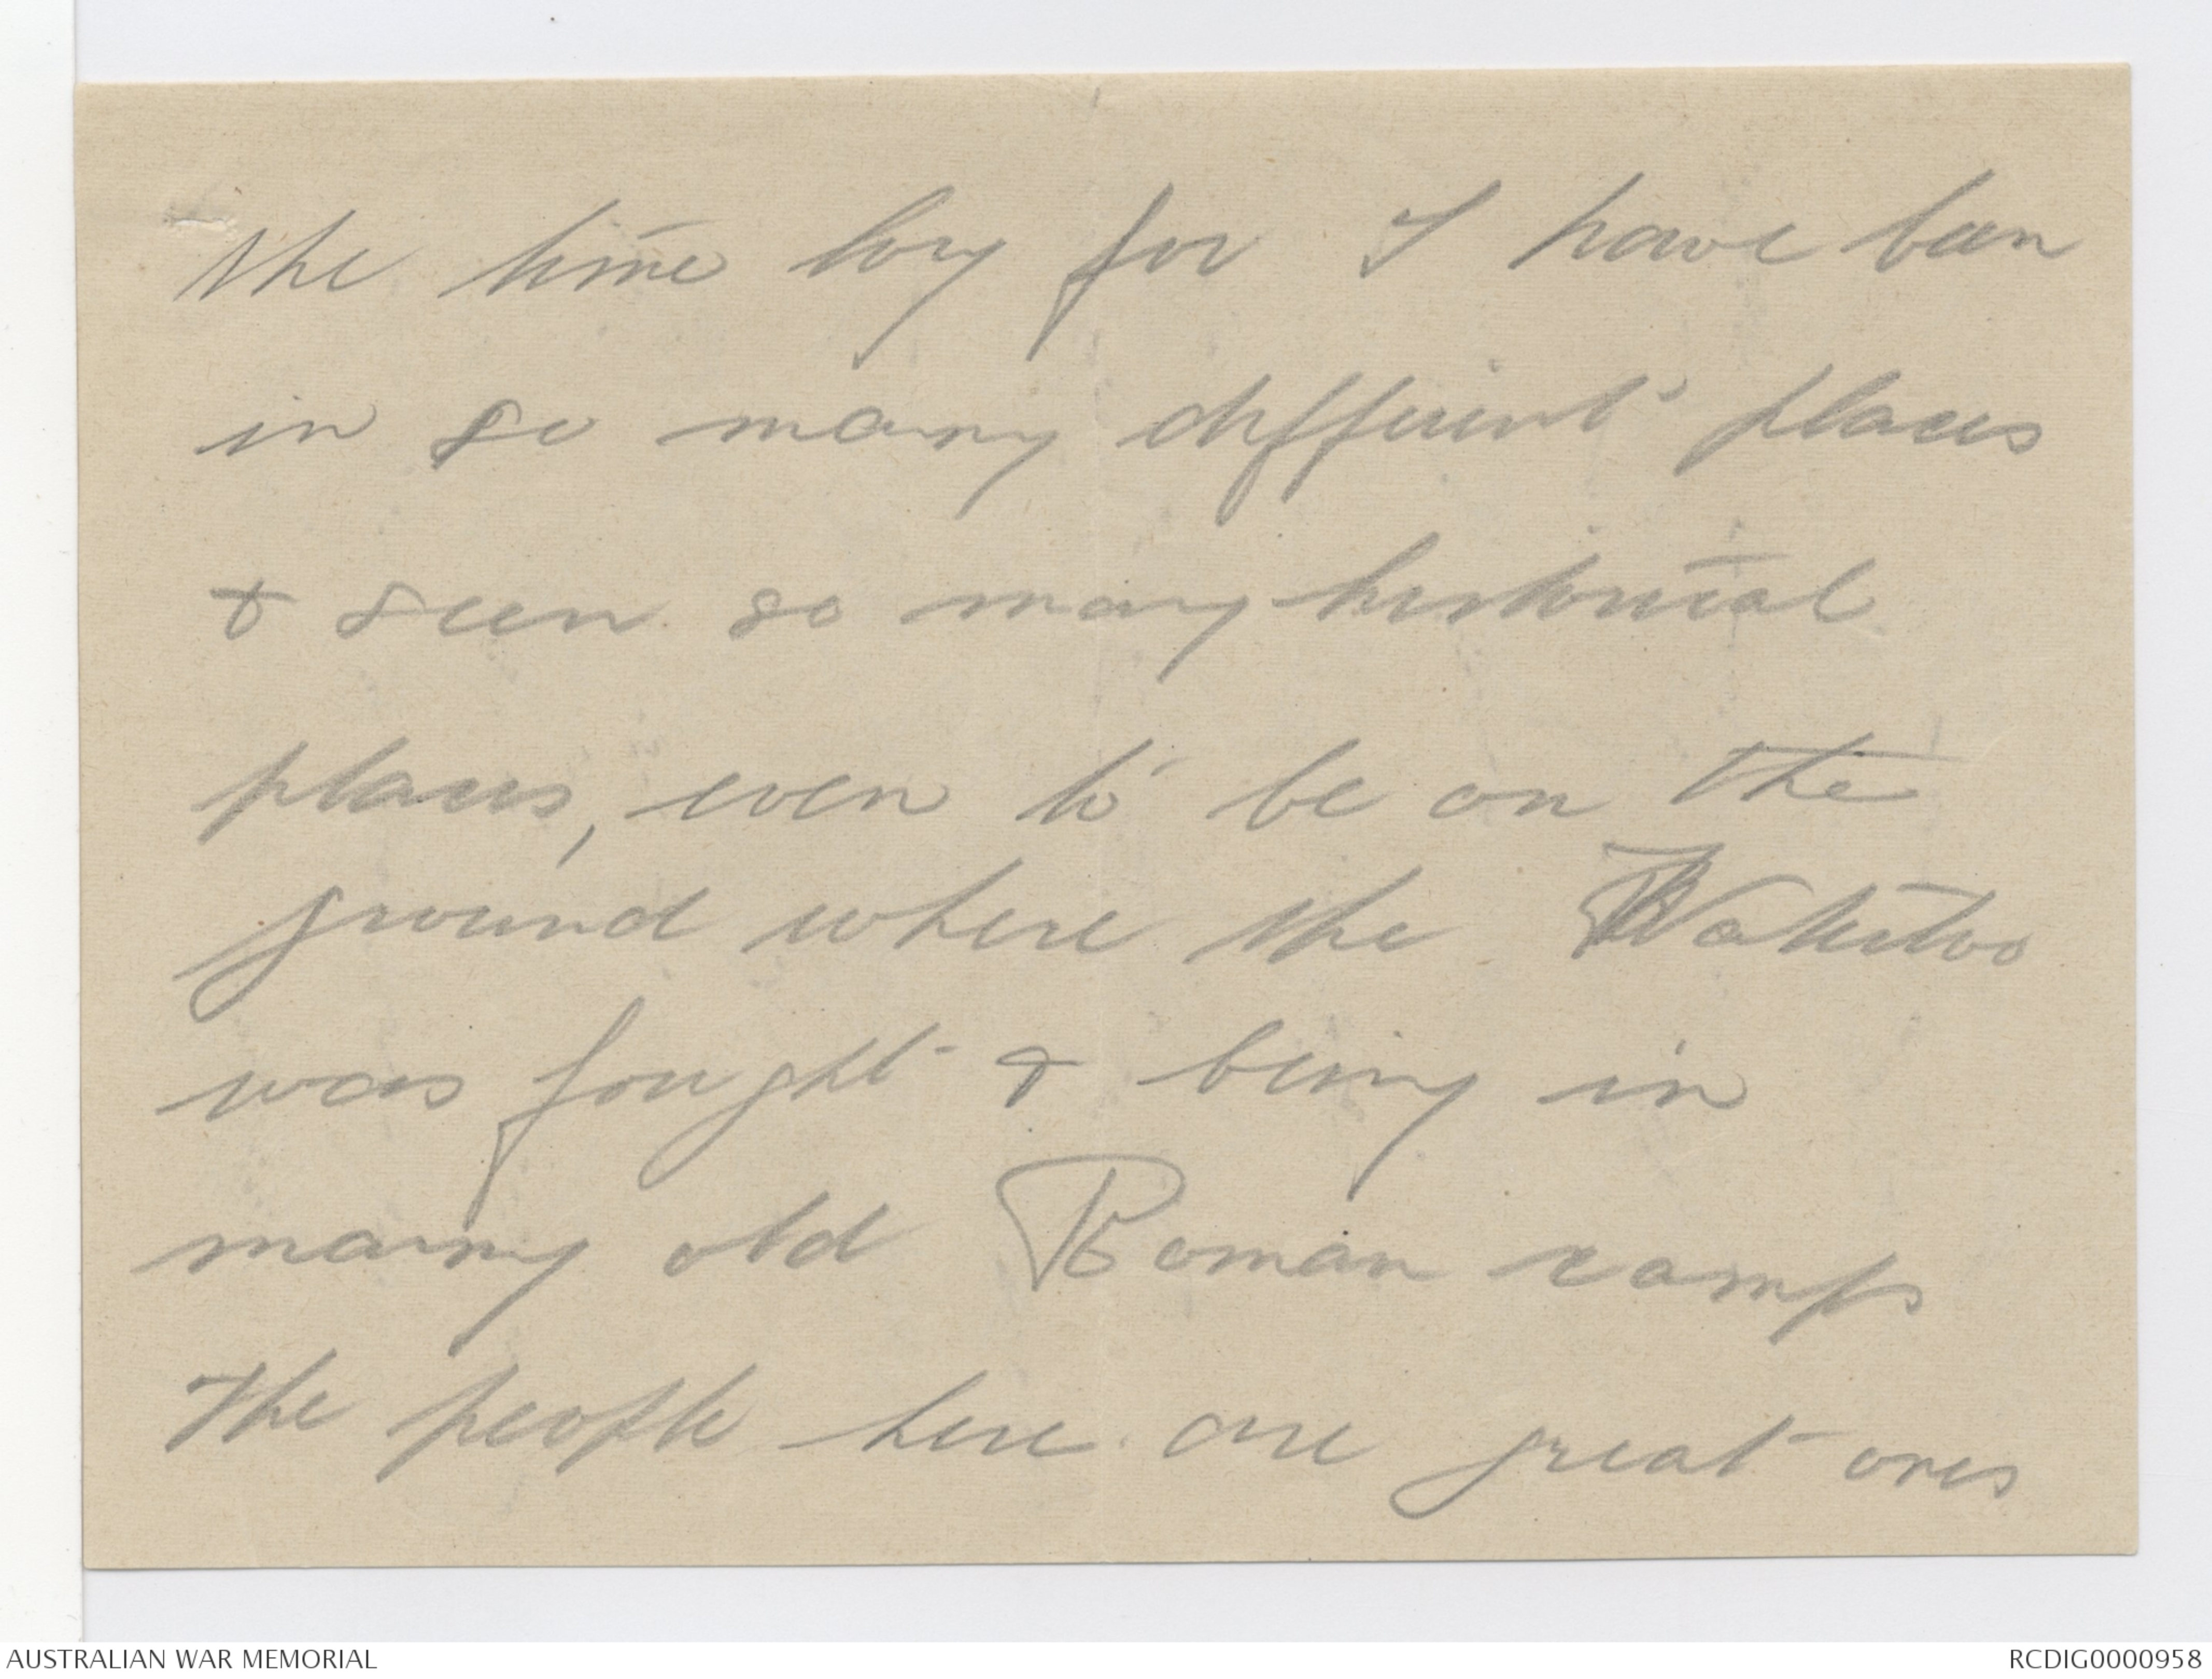 the time long for I have been
in so many different places
& seen so many historical
places, even to be on the
ground where the Waterloo
was fought & being in
many old Roman camps
The people here are great ones
AUSTRALIAN WAR MEMORIAL
RCDIG0000958